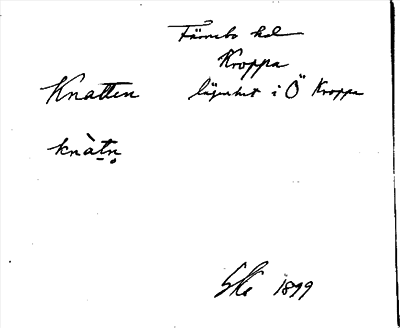 Färnebo hd
Kroppa
Knatten lägenhet i Ö Kroppa
knàtn̥
1899